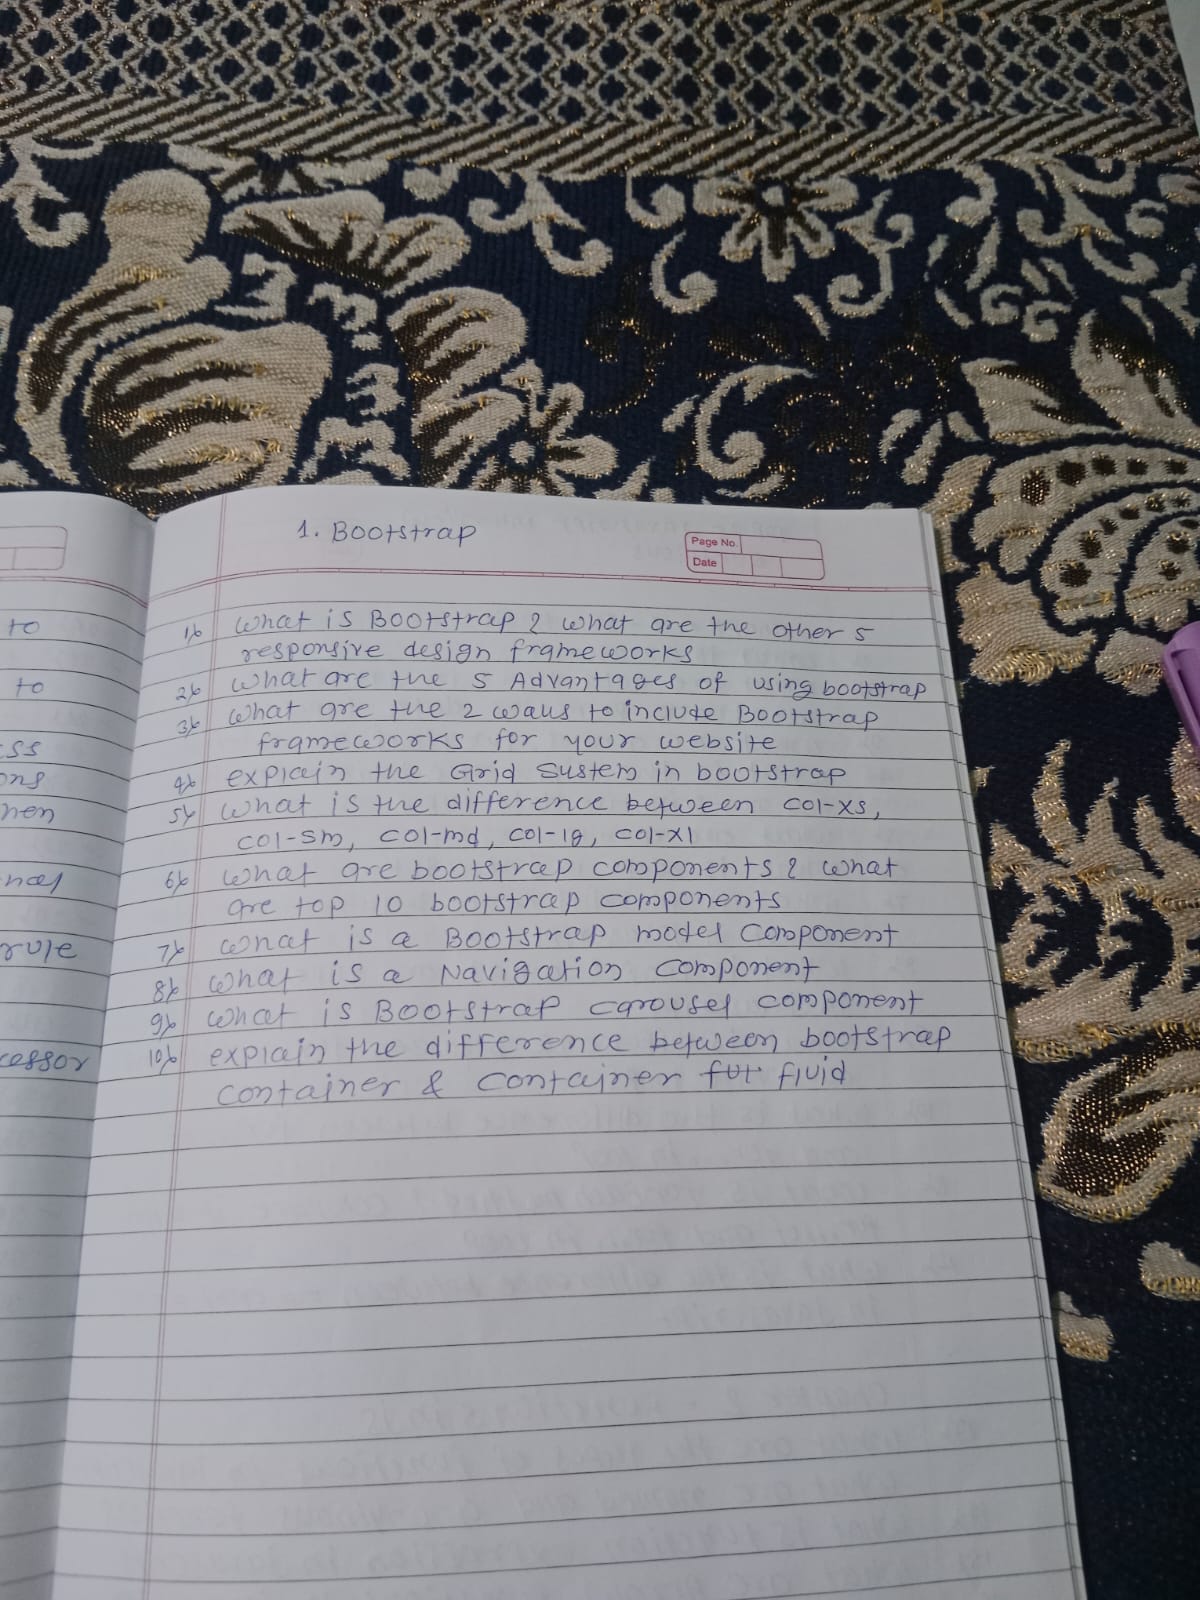 1. Bootstrap
Page No.
Date
to
to
ess
ons
hen
rule
cessor
1) What is Bootstrap? what are the other 5
responsive design frameworks
2) What are the 5 Advantages of using bootstrap
3) What are the 2 waus to include Bootstrap
frameworks for your website
4) explain the Grid System in bootstrap
5) What is the difference between col-xs,
col-sm, col-md, col-lg, col-xl
6) What are bootstrap components? what
are top 10 bootstrap components
7) What is a Bootstrap model component
8) What is a Navigation component
9) What is Bootstrap carousel component
10) explain the difference between bootstrap
container & container fluid